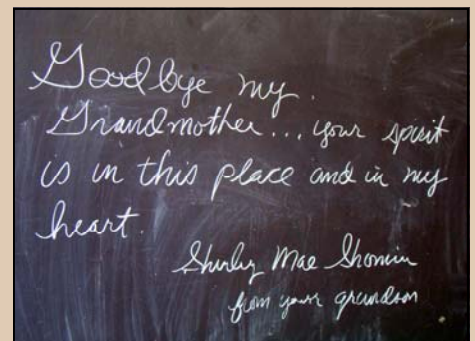 Goodbye my
Grandmother... your spirit
is in this place and in my
heart.
Shirley Mae Shomin
from your grandson